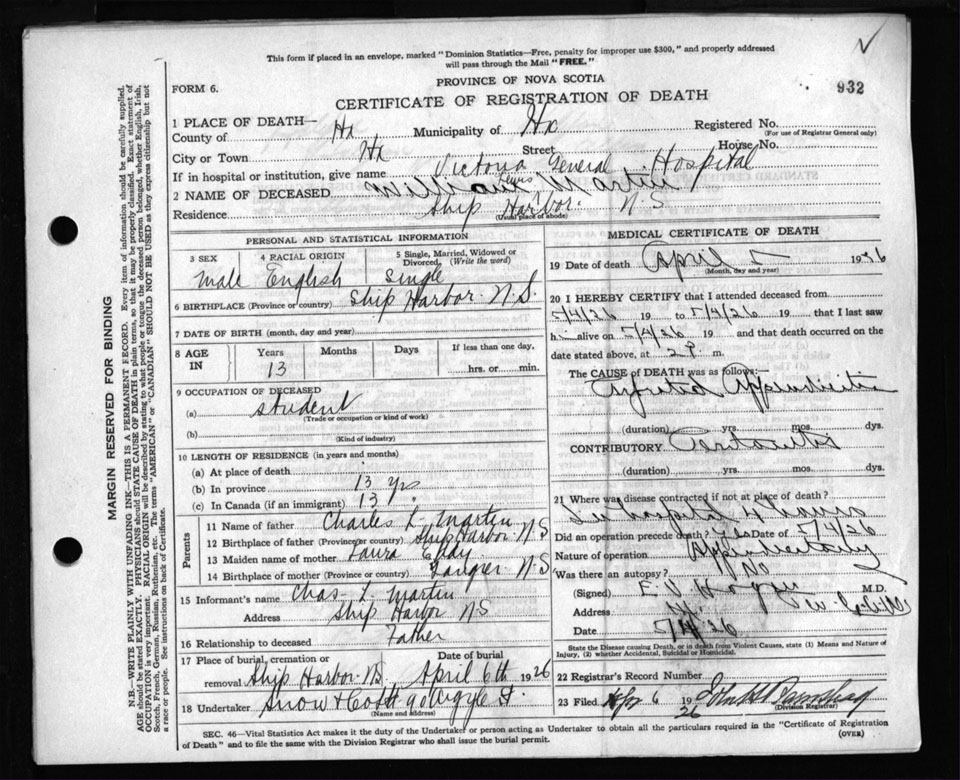 This form if placed in an envelope, marked "Dominion Statistics—Free, penalty for improper use $300," and properly addressed
will pass through the Mail "FREE."
FORM 6.
PROVINCE OF NOVA SCOTIA
932
CERTIFICATE OF REGISTRATION OF DEATH
1 PLACE OF DEATH—
County of Hx Municipality of Hx Registered No.
(For use of Registrar General only)
City or Town Hx Street House No.
If in hospital or institution, give name Victoria General Hospital
Lewis
2 NAME OF DECEASED William Martin
Residence Ship Harbor N.S.
(Usual place of abode)
PERSONAL AND STATISTICAL INFORMATION
3 SEX
male
4 RACIAL ORIGIN
English
5 Single, Married, Widowed or
Divorced (Write the word)
Single
6 BIRTHPLACE (Province or country) Ship Harbor N.S.
7 DATE OF BIRTH (month, day and year)
8 AGE
IN
Years
13
Months
Days
If less than one day,
hrs. or min.
9 OCCUPATION OF DECEASED
(a) student
(Trade or occupation or kind of work)
(b)
(Kind of industry)
10 LENGTH OF RESIDENCE (in years and months)
(a) At place of death
(b) In province 13 yrs
(c) In Canada (if an immigrant) 13 "
Parents
11 Name of father Charles L. Martin
12 Birthplace of father (Province or country) Ship Harbor N S
13 Maiden name of mother Laura Eddy
14 Birthplace of mother (Province or country) Tangier N.S
15 Informant's name Chas L. Martin
Address Ship Harbor NS
16 Relationship to deceased Father
17 Place of burial, cremation or
removal Ship Harbor NS
Date of burial
April 6th 1926
18 Undertaker Snow & Co Ltd 90 Argyle St
(Name and address)
MEDICAL CERTIFICATE OF DEATH
19 Date of death April 5 1926
(Month, day and year)
20 I HEREBY CERTIFY that I attended deceased from
5/4/26 19 to 5/4/26 19 that I last saw
him alive on 5/4/26 19 and that death occurred on the
date stated above, at 2 P. m.
The CAUSE of DEATH was as follows:—
Appendicitis
(duration) yrs. mos. dys.
CONTRIBUTORY Peritonitis
(duration) yrs. mos. dys.
21 Where was disease contracted if not at place of death?
In hospital 4 hours
Did an operation precede death? Yes Date of 5/4/26
Nature of operation Appendectomy
Was there an autopsy? No
(Signed) E.V. Hogan M.D.
Address
Date 5/4/26
State the Disease causing Death, or in death from Violent Causes, state (1) Means and Nature of
Injury, (2) whether Accidental, Suicidal or Homicidal.
22 Registrar's Record Number
23 Filed Apr 6 1926
(Division Registrar)
SEC. 46—Vital Statistics Act makes it the duty of the Undertaker or person acting as Undertaker to obtain all the particulars required in the "Certificate of Registration
of Death" and to file the same with the Division Registrar who shall issue the burial permit.
(OVER)
MARGIN RESERVED FOR BINDING
N.B.—WRITE PLAINLY WITH UNFADING INK—THIS IS A PERMANENT RECORD. Every item of information should be carefully supplied.
AGE should be stated EXACTLY. PHYSICIANS should STATE CAUSE OF DEATH in plain terms, so that it may be properly classified. Exact statement of
OCCUPATION is very important. RACIAL ORIGIN will be described by stating to what people or tongue the deceased person belonged, whether English, Irish,
Scotch, French, German, Russian, Ruthenian, etc. The terms "AMERICAN" or "CANADIAN" SHOULD NOT BE USED as they express citizenship but not
a race or people. See instructions on back of Certificate.